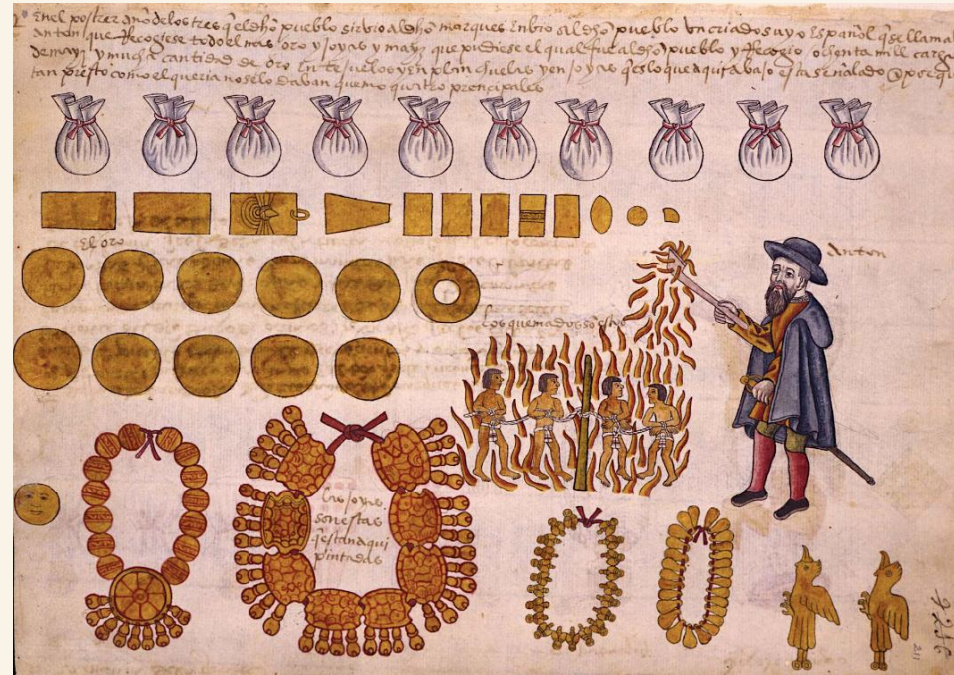 En el postrer año de los tres q̃ el dho pueblo sirvio al dho marques Enbio al dho pueblo Un criado suyo Español q̃ se llama
anton que Recogiese todo el mas oro y joyas y mayz que pudiese el qual fue al dho pueblo y Recogio ochenta mill cargas
de mayz y mucha cantidad de oro En tejuelos y en planchuelas y en joyas q̃ es lo que aqui abajo esta señalado y porque
tan presto como el queria no se lo daban quemo quatro prencipales
El oro
anton
los quemados son estos
las joyas
son estas
q̃ estan aqui
pintadas
211